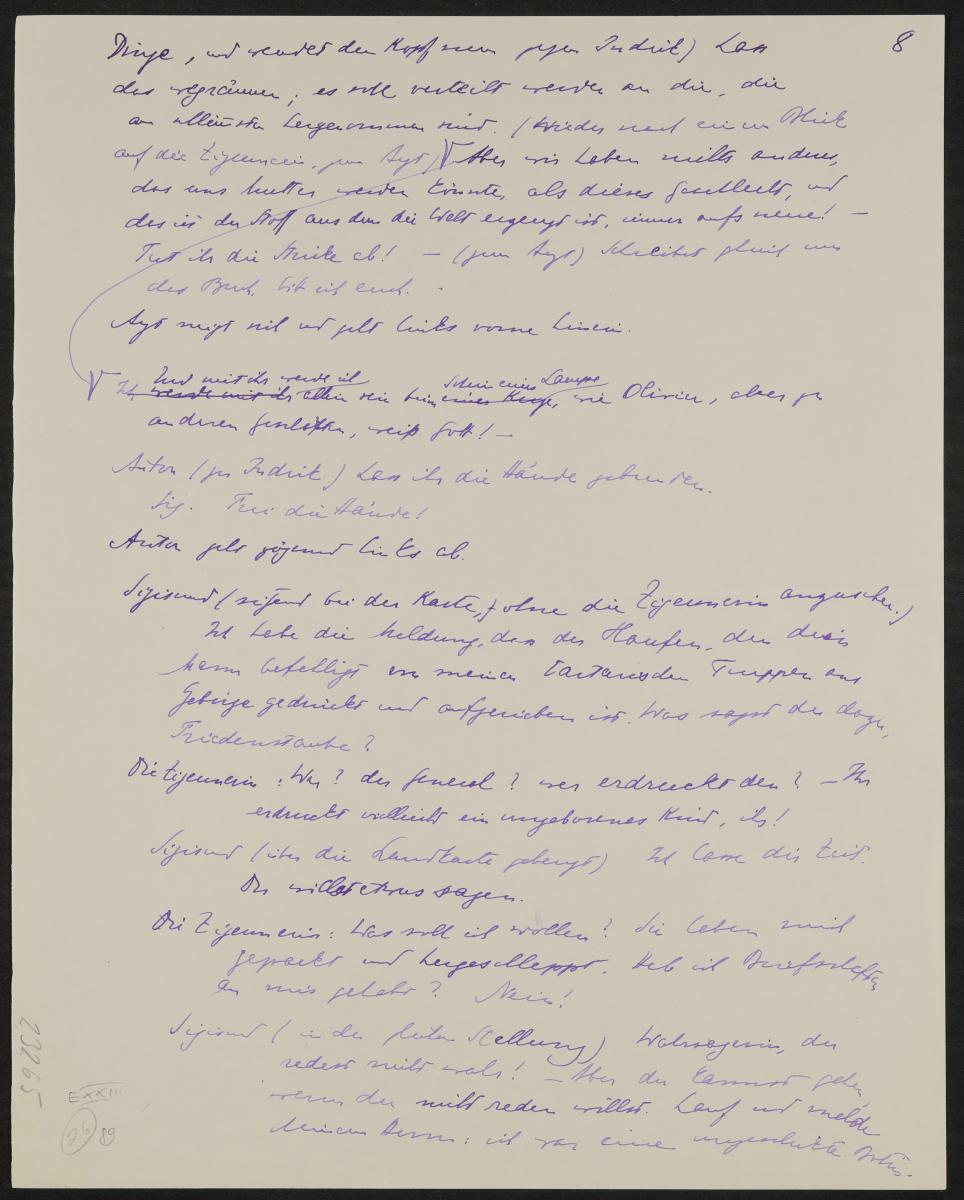 8
Dinge, und wendet den Kopf nun gegen Indrik) Lass
das wegräumen; es soll verteilt werden an die, die
am allerärmsten hergenommen sind. (Wieder nach einem Blick
auf die Zigeunerin, zum Arzt) Aber wir haben nichts anderes,
das uns Mutter werden könnte, als dieses Geschlecht, und
das ist der Stoff aus dem die Welt erzeugt ist, immer aufs neue! –
Tut ihr die Stricke ab! – (zum Arzt) Schreibet gleich um
das Buch, bitt ich euch.
Arzt neigt sich und geht links vorne hinein.
Und mit ihr werde ich schein einer Lampe
Ich werde mit ihr allein sein beim eines Kerze, wie Olivier, aber zu
anderen Geschäften, weiß Gott! –
Anton (zu Indrik) Lass ihr die Hände gebunden.
Sig. Frei die Hände!
Anton geht zögernd links ab.
Sigismund (sitzend bei der Karte, ohne die Zigeunerin anzusehen.)
Ich habe die Meldung, dass der Haufen, den dein
Mann befehligt von meinen tartarischen Truppen ans
Gebirge gedrückt und aufgerieben ist. Was sagst du dazu,
Friedenstaube?
Die Zigeunerin: Wer? der General? wer erdruckt den? – Ihr
erdruckt vielleicht ein ungeborenes Kind, ihr!
Sigismund (über die Landkarte gebeugt) Ich lasse dir Zeit.
Du willst etwas sagen.
Die Zigeunerin: Was soll ich wollen? Sie haben mich
gepackt und hergeschleppt. Hab ich Briefschaften
an mir gehabt? Nein!
Sigismund (in der gleichen Stellung) Wahrsagerin, du
redest nicht wahr! – Aber du kannst gehen,
wenn du nicht reden willst. Lauf und melde
deinem Herrn: ich war eine ungeschickte Botin.
23265
EXXIII
26
89